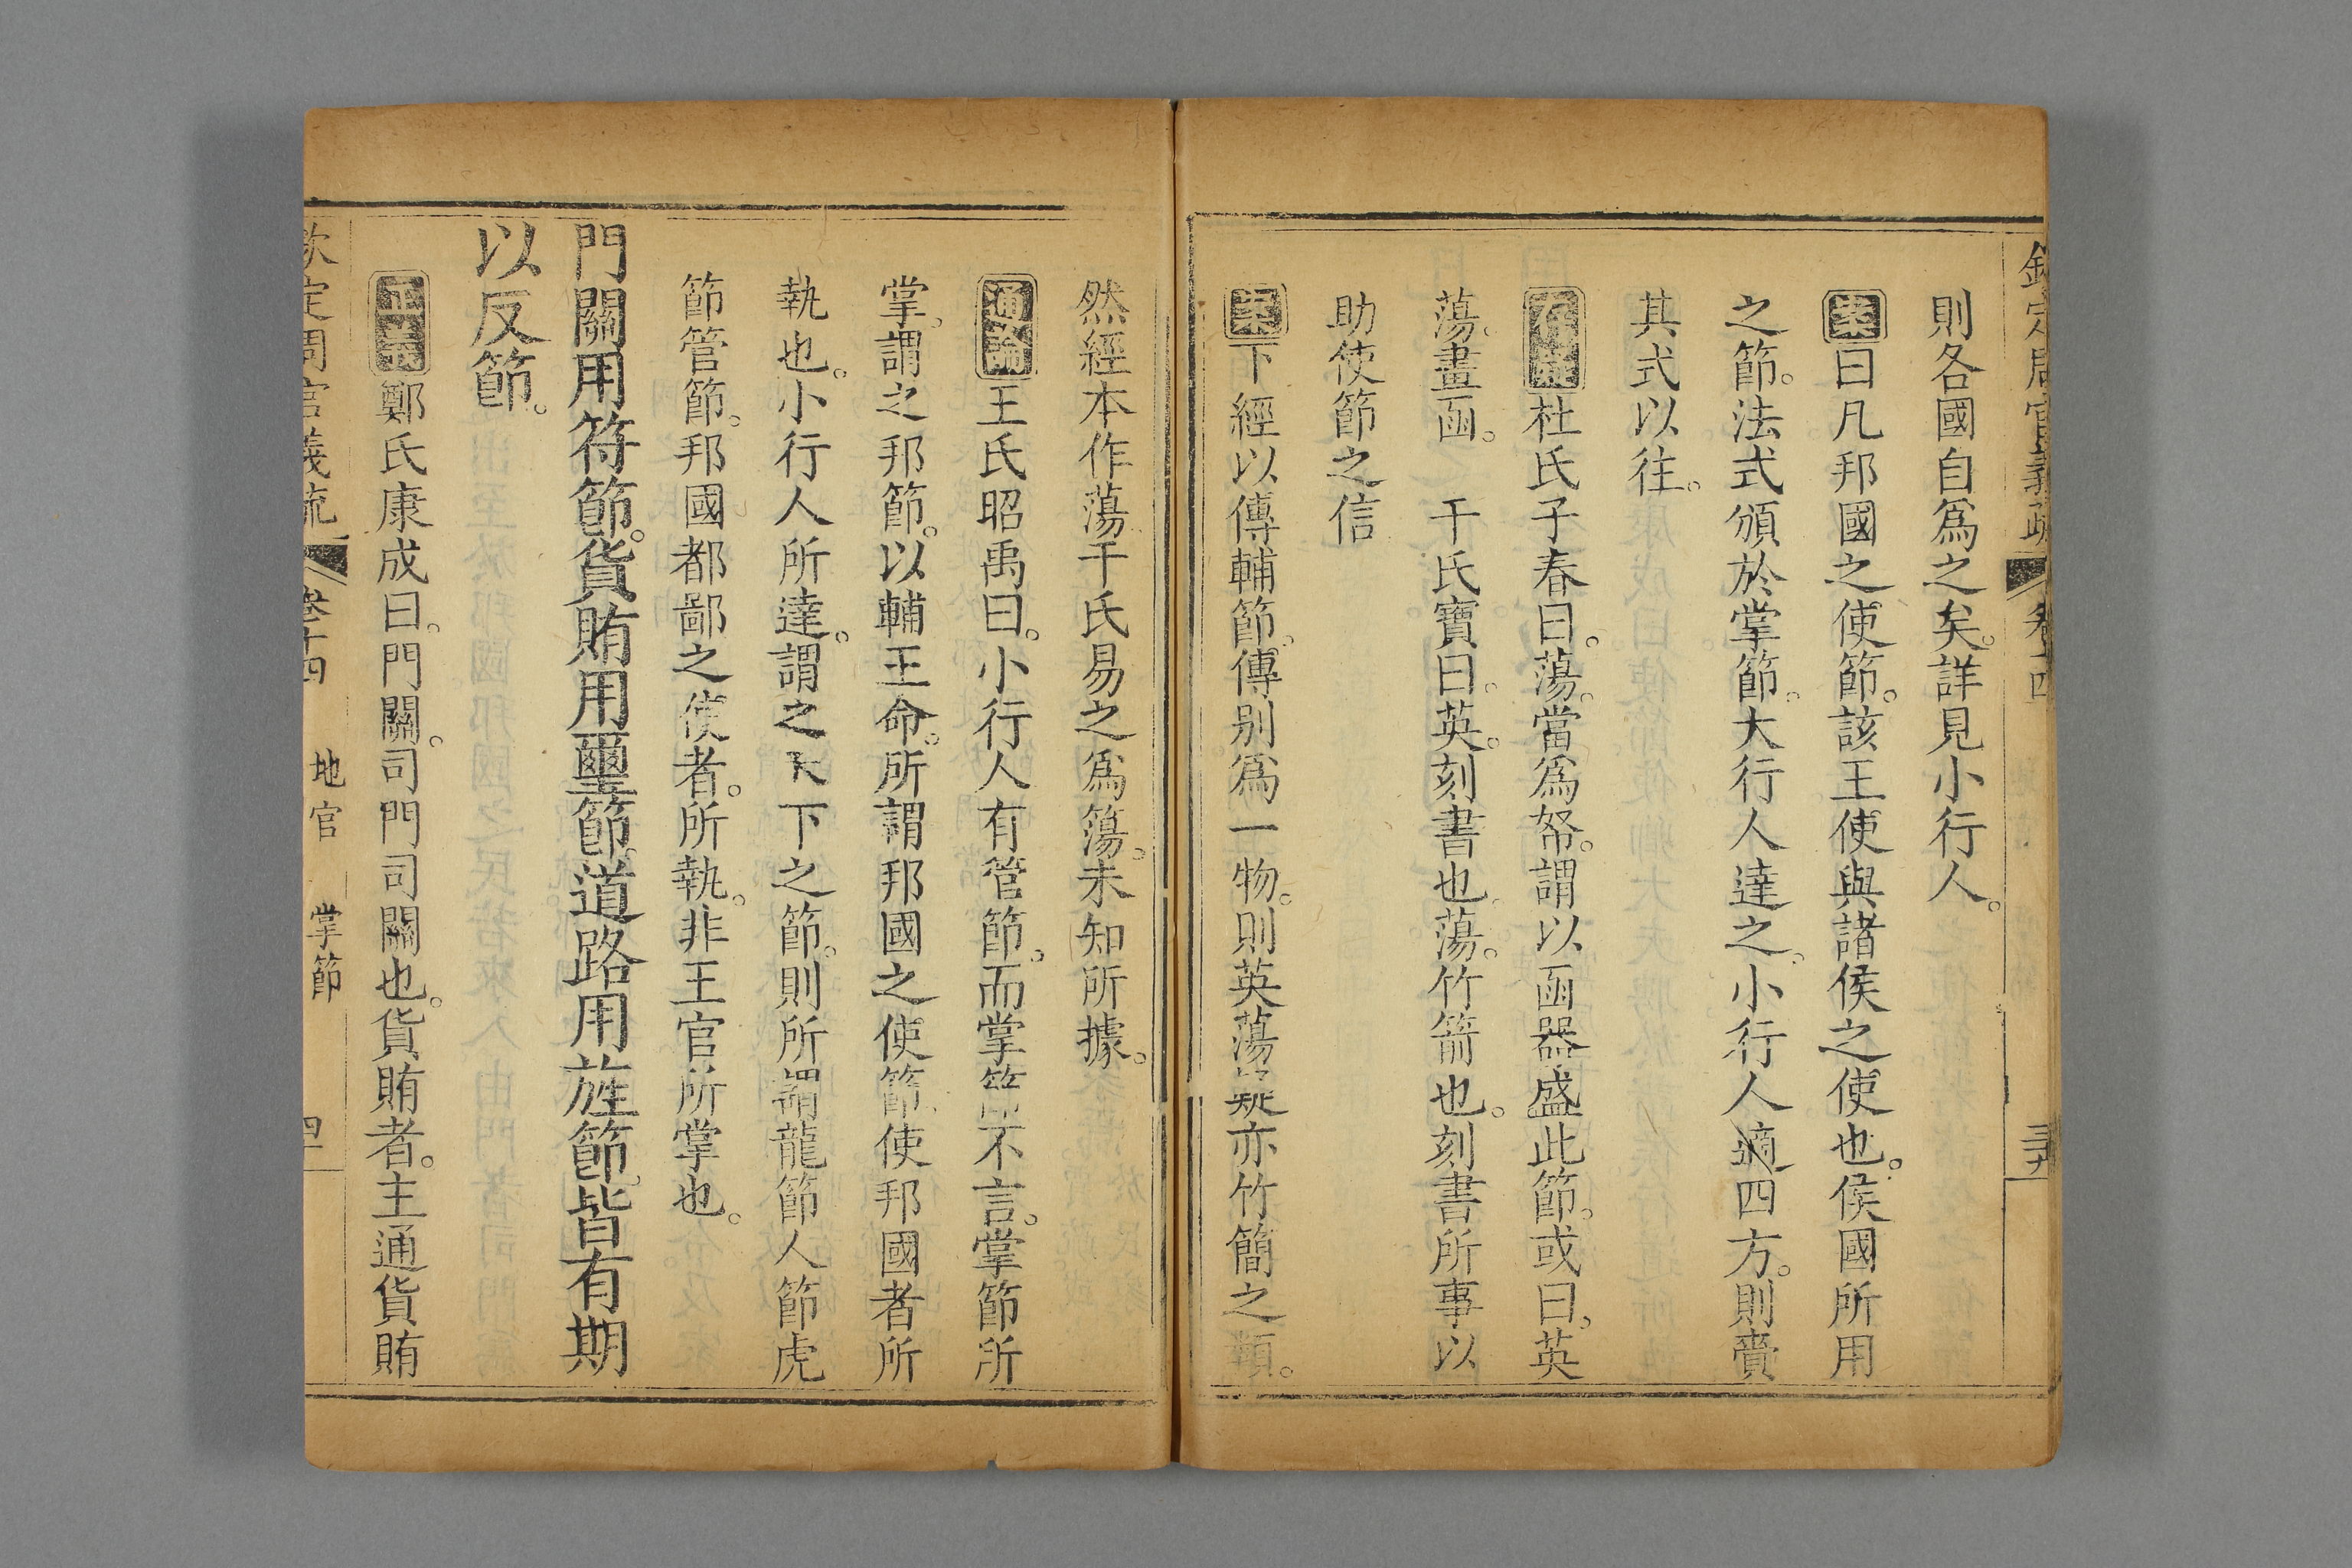 欽定周官義疏 卷十四
則各國自爲之矣。詳見小行人。
案曰凡邦國之使節。該王使與諸侯之使也。侯國所用
之節。法式頒於掌節。大行人達之。小行人適四方。則賷
其式以往。
存疑杜氏子春曰。蕩。當爲帑。謂以函器盛此節。或曰。英
蕩。畫函。 干氏寶曰。英。刻書也。蕩。竹箭也。刻書所事以
助使節之信
案下經以傳輔節。傳别爲一物。則英蕩疑亦竹簡之類。
然經本作蕩干氏易之爲簜。未知所據。
通論王氏昭禹曰。小行人有管節。而掌節不言。掌節所
掌。謂之邦節。以輔王命。所謂邦國之使節。使邦國者所
執也。小行人所達。謂之天下之節。則所謂龍節人節虎
節管節。邦國都鄙之使者。所執。非王官所掌也。
門關用符節。貨賄用璽節。道路用旌節。皆有期
以反節。
正義鄭氏康成曰。門關。司門司關也。貨賄者。主通貨賄
欽定周官義疏 卷十四 地官 掌節